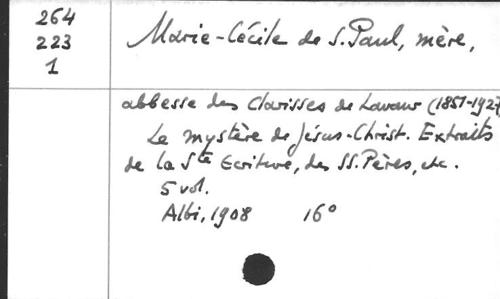 264
223
1
Marie-Cécile de S. Paul, mère,
abbesse des Clarisses de Lavaur (1851-1927
Le mystère de Jésus-Christ. Extraits
de la Ste Ecriture, des SS. Pères, etc.
5 vol.
Albi, 1908 16°